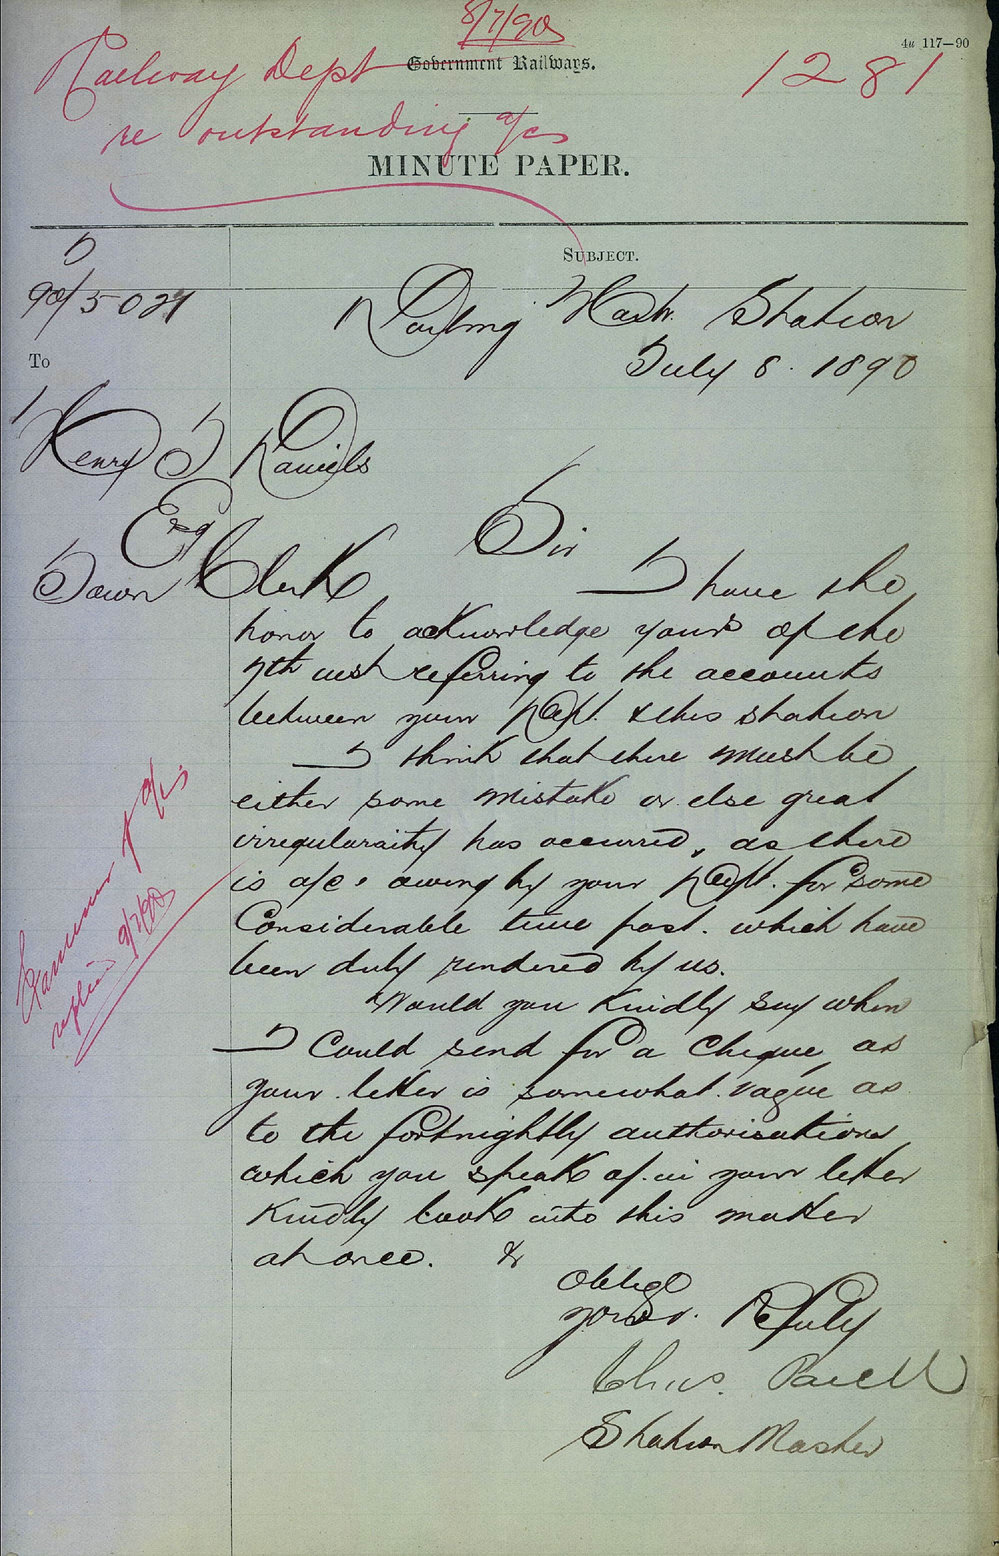 8/7/90
4u 117—90
Railway Dept Government Railways. 1281
re outstanding a/cs
MINUTE PAPER.
SUBJECT.
90/5021
Darling Harbr. Station
To
July 8. 1890
Henry J Daniels
Esq
Sir
Town Clerk
I have the
honor to acknowledge yours of the
7th inst referring to the accounts
between your Dept. & this station
I think that there must be
either some mistake or else great
irregularaity has occurred, as there
is a/cs owing by your Dept. for some
Considerable time past. which have
been duly rendered by us.
Would you Kindly say when
I Could send for a Cheque, as
your letter is somewhat vague as
to the fortnightly authorisations
which you speak of in your letter
Kindly look into this matter
at once. &
Oblige
yours. Rsfuly
Chas.
Station Master
Examiner of a/cs
replied 9/7/90